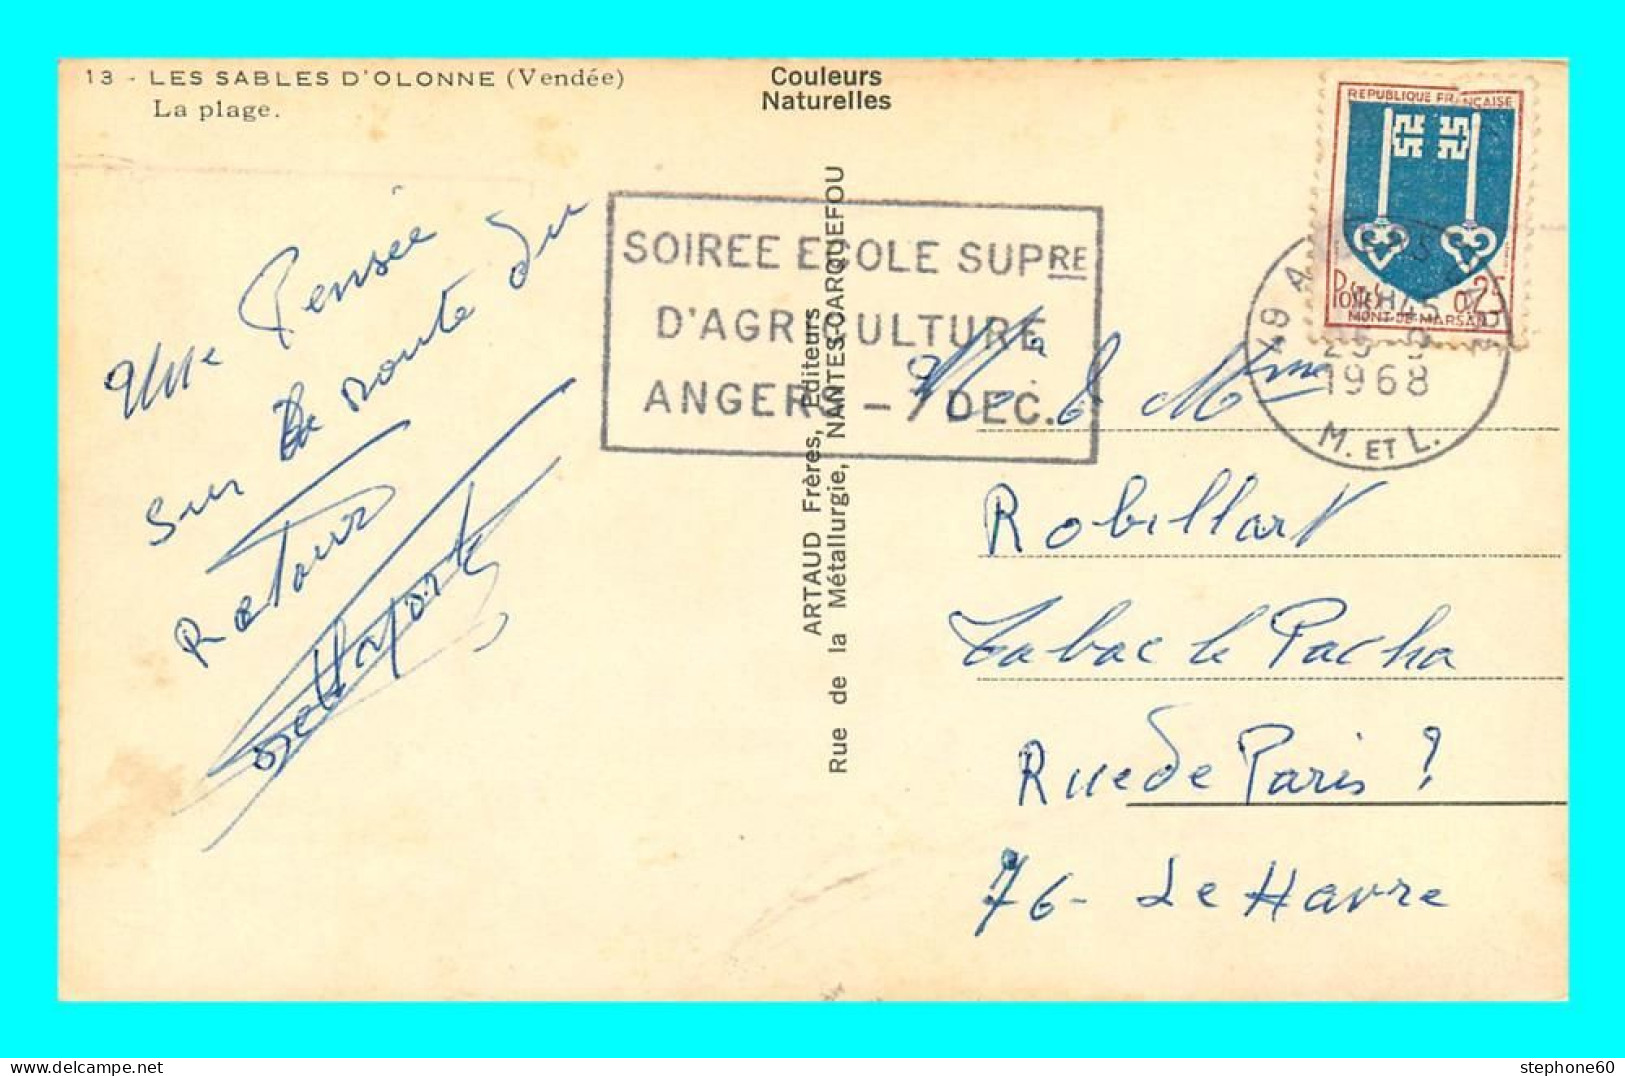 13 - LES SABLES D'OLONNE (Vendée)
La plage.
Couleurs
Naturelles
REPUBLIQUE FRANÇAISE
POSTES 0,25
MONT-DE-MARSAN
49 A
1968
M. ET L.
SOIREE ECOLE SUPRE
D'AGRICULTURE
ANGERS - 7 DEC.
ARTAUD Frères, Editeurs
Rue de la Métallurgie, NANTES-CARQUEFOU
Une Pensée
sur la route du
Retour
Mr & Mme
Robillart
Tabac le Pacha
Rue de Paris ?
76 - Le Havre
stephone60